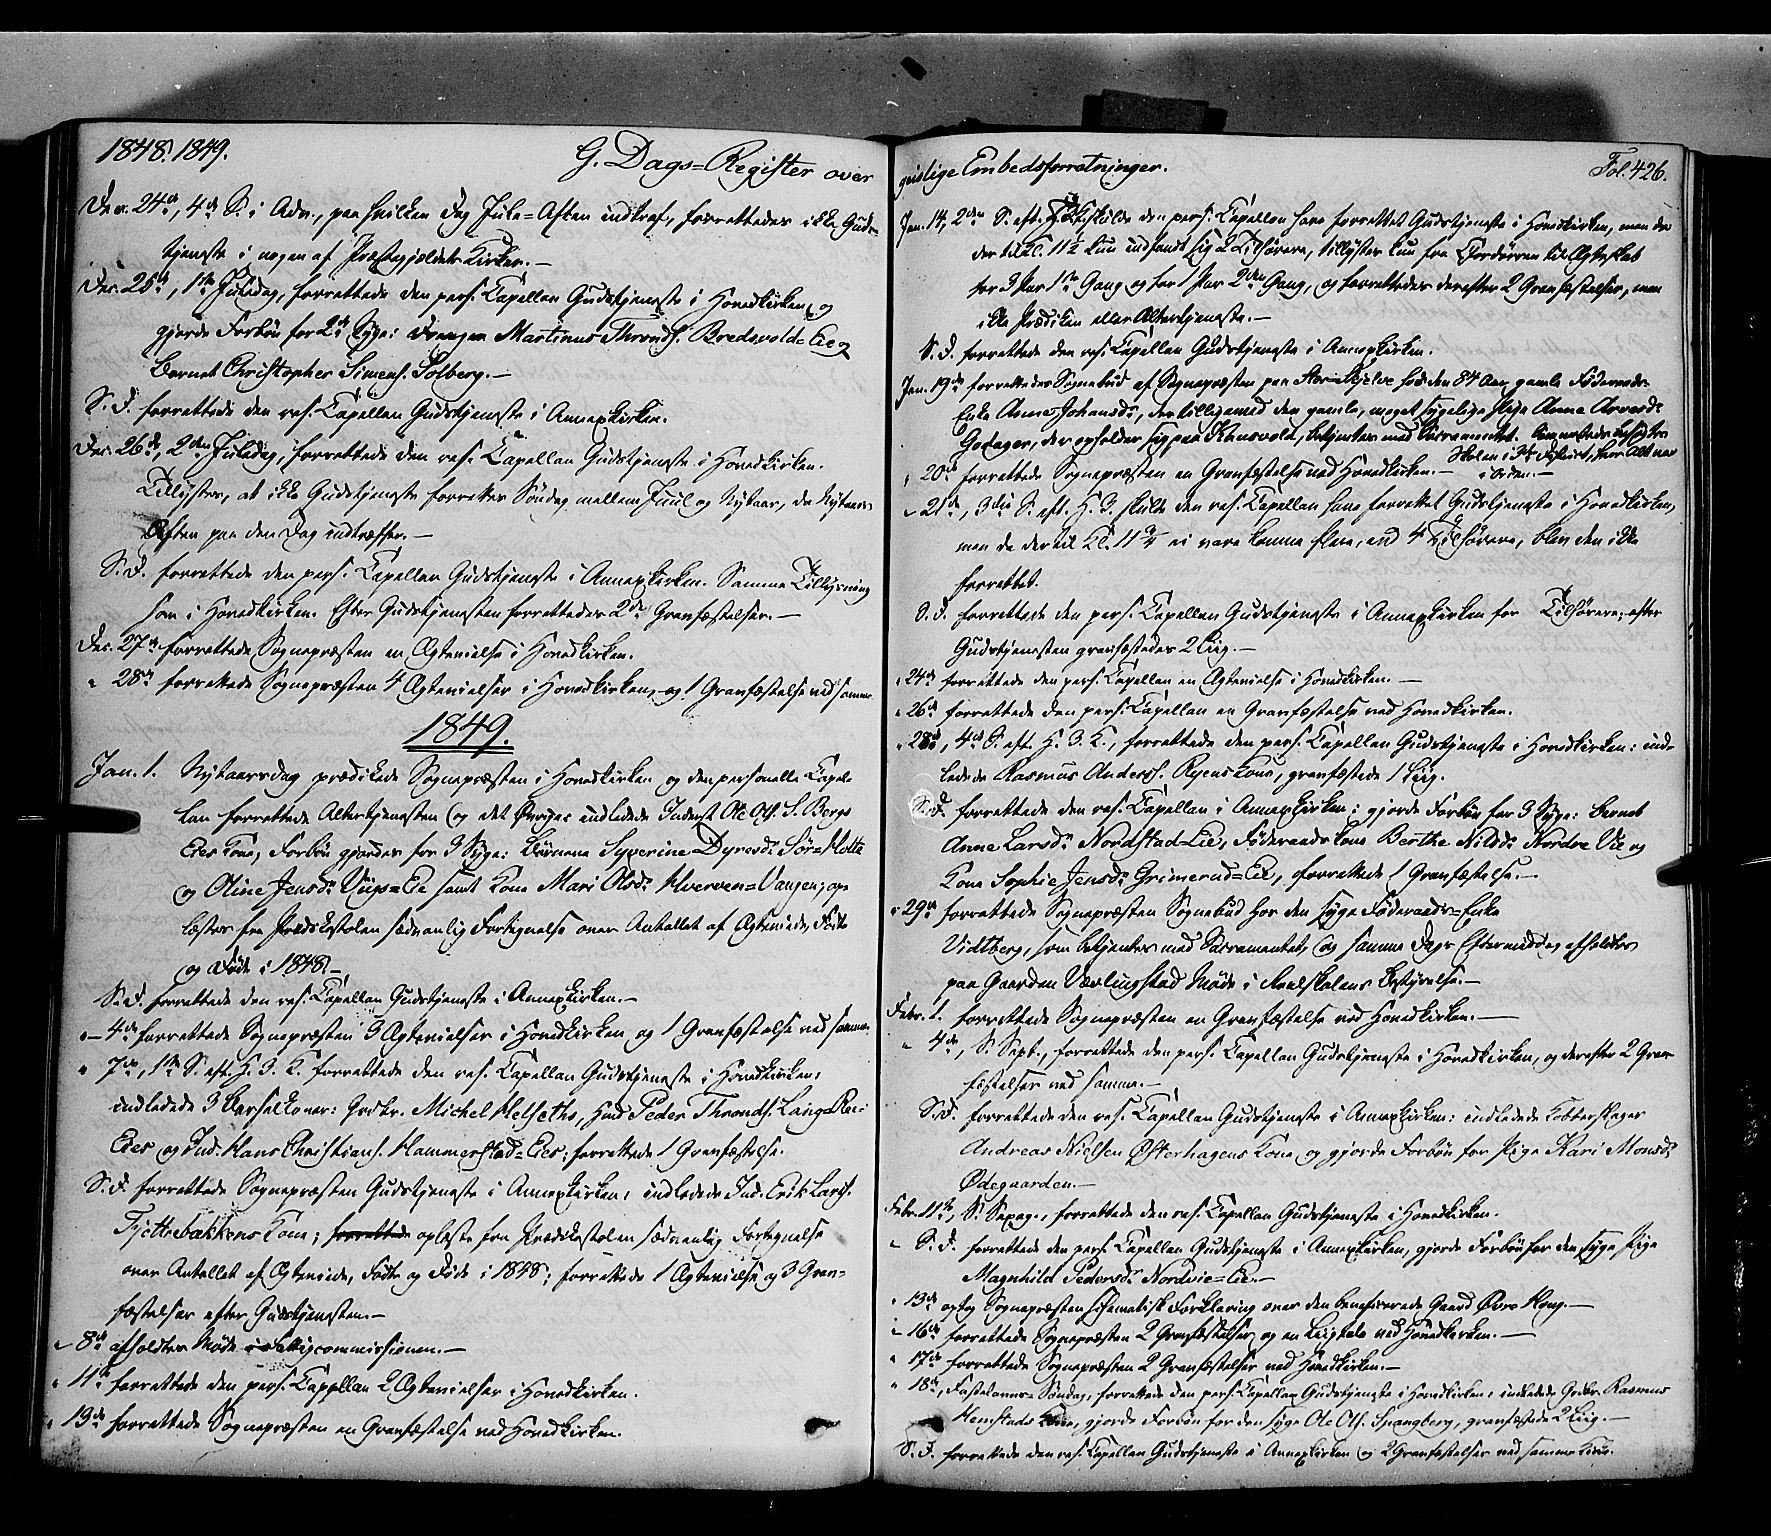 1848. 1849.
G. Dags-Register over
Dec. 24de, 4de S. i Adv., paa hvilken Dag Jule-Aften indtraf, forrettedes ikke Guds-
tjeneste i nogen af Præstegjældets Kirker.—
Dec. 25de, 1ste Juledag, forrettede den pers. Capellan Gudstjeneste i Hovedkirken, og
gjorde Forbøn for 2de Syge: Drengen Martinus Thronds. Bredsvold-Eie og
Barnet Christopher Simens. Solberg.—
S. D. forrettede den res. Capellan Gudstjeneste i Annexkirken.
Dec. 26de, 2den Juledag, forrettede den res. Capellan Gudstjeneste i Hovedkirken.
Tillystes, at ikke Gudstjeneste forrettes Søndag mellem Juul og Nytaar, da Nytaars-
Aften paa den Dag indtræffer.—
S. D. forrettede den pers. Capellan Gudstjeneste i Annexkirken. Samme Tillysning
som i Hovedkirken. Efter Gudstjenesten forrettedes 2de Gravfæstelser.—
Dec. 27de forrettede Sognepræsten en Ægtevielse i Hovedkirken.
" 28de forrettede Sognepræsten 4 Ægtevielser i Hovedkirken, og 1 Gravfæstelse ved samme
1849.
Jan. 1. Nytaarsdag prædikede Sognepræsten i Hovedkirken og den personelle Capel-
lan forrettede Altertjenesten (og det Øvrige: indledede Inderst Ole Ols. S. Bergs
Eies Kone, Forbøn gjordes for 3 Syge: Børnene Syverine Dyresdr. Sør-Hotte
og Oline Jensdr. Viigs-Eie samt Kone Mari Olsdr. Hverven-Vangen; op-
læstes fra Prædikestolen sædvanlig Fortegnelse over Antallet af Ægteviede, Fødte
og Døde i 1848.—
S. D. forrettede den res. Capellan Gudstjeneste i Annexkirken.—
"— 4de forrettede Sognepræsten 3 Ægtevielser i Hovedkirken og 1 Gravfæstelse ved samme
" 7de, 1ste S. eft. H. 3. K. forrettede den res. Capellan Gudstjeneste i Hovedkirken:
indledede 3 Barselkoner: Gaardbr. Michel Helseths, Hmd. Peder Thronds. Lang-Rei-
Eies og Ind. Hans Christians. Hammerstad-Eies; forrettede 1 Gravfæstelse.
S. D. forrettede Sognepræsten Gudstjeneste i Annexkirken: indledede Ind. Erik Lars.
Tjettebakkens Kone; forrettede oplæste fra Prædikestolen sædvanlig Fortegnelse
over Antallet af Ægteviede, Fødte og Døde i 1848; forrettede 1 Ægtevielse og 3 Grav-
fæstelser efter Gudstjenesten.—
" 8de afholdtes Møde i Fattigcommissionen.—
" 11te forrettede den pers. Capellan 2 Ægtevielser i Hovedkirken.
" 13de forrettede Sognepræsten en Gravfæstelse ved Hovedkirken.
geistlige Embedsforretninger.
Fol. 426.
Jan. 14, 2den S. eft. H. 3 K. skulde den pers. Capellan have forrettet Gudstjeneste i Hovedkirken, men da
der til Kl. 11½ kun indfandt sig 2 Tilhørere, tillystes kun fra Chordørren til Ægteskab
for 3 Par 1ste Gang og for 1 Par 2den Gang, og forrettedes derefter 2 Gravfæstelser, men
ikke Prædiken eller Altertjeneste.—
S. D. forrettede den res. Capellan Gudstjeneste i Annexkirken.
Jan. 19de forrettedes Sognebud af Sognepræsten paa hos den 84 Aar gamle Føderaads-
Enke Anne Johansdr., der tilligemed den gamle, meget sygelige Pige Anne Arvesdr.
Godager, der opholder sig paa betjentes med Sacramentet. Sammesteds besøgtes
Skolen i 3die District, hvor Alt var
i Orden.—
" 20de forrettede Sognepræsten en Gravfæstelse ved Hovedkirken.—
" 21de, 3die S. eft. H. 3. skulde den res. Capellan have forrettet Gudstjeneste i Hovedkirken,
men da der til Kl. 11¾ ei vare komne flere, end 4 Tilhørere, blev den ikke
forrettet.
S. D. forrettede den pers. Capellan Gudstjeneste i Annexkirken for Tilhørere; efter
Gudstjenesten gravfæstedes 2 Liig.—
" 24de forrettede den pers. Capellan en Ægtevielse i Hovedkirken.—
" 26de forrettede den pers. Capellan en Gravfæstelse ved Hovedkirken.
" 28de, 4de S. eft. H. 3. K., forrettede den pers. Capellan Gudstjeneste i Hovedkirken: ind-
ledede Rasmus Anderss. Ryens Kone, gravfæstede 1 Liig.
S. D. forrettede den res. Capellan i Annexkirken: gjorde Forbøn for 3 Syge: Barnet
Anne Larsdr. Nordstad-Eie, Føderaadskone Berthe Nilsdr. Nordre Vie og
Kone Sophie Jensdr. Grimerud-Eie, forrettede 1 Gravfæstelse.—
" 29de forrettede Sognepræsten Sognebud hos den syge Føderaads-Enke
Vidtberg, som betjentes med Sacramentet, (og samme Dags Eftermiddag afholdtes
paa Gaarden Værlingstad Møde i Realskolens Bestyrelse.—
Febr. 1. forrettede Sognepræsten en Gravfæstelse ved Hovedkirken.—
" 4de, S. Sept., forrettede den pers. Capellan Gudstjeneste i Hovedkirken, og derefter 2 Grav-
fæstelser ved samme.—
S. D. forrettede den res. Capellan Gudstjeneste i Annexkirken: indledede Kobberslager
Andreas Nielsen Østerhagens Kone og gjorde Forbøn for Pige Kari Monsdr.
Ødegaarden.—
Febr. 11te, S. Sexag., forrettede den res. Capellan Gudstjeneste i Hovedkirken.
" S. D. forrettede den pers. Capellan Gudstjeneste i Annexkirken, gjorde Forbøn for den syge Pige
Magnhild Pedersdr. Nordvie-Eie.—
" 13de optog Sognepræsten schematisk Forklaring over den beneficerede Gaard Øvre Houg.—
" 16de forrettede Sognepræsten 2 Gravfæstelser og en Liigtale ved Hovedkirken.—
" 17de forrettede Sognepræsten 2 Gravfæstelser ved Hovedkirken.—
" 18de, Fastelavns-Søndag, forrettede den pers. Capellan Gudstjeneste i Hovedkirken: indledede Gaardbr. Rasmus
Hemstads Kone, gjorde Forbøn for den syge Ole Ols. Spangberg, gravfæstede 2 Liig.—
S. D. forrettede den res. Capellan Gudstjeneste i Annexkirken (og 2 Gravfæstelser ved samme Kirke.